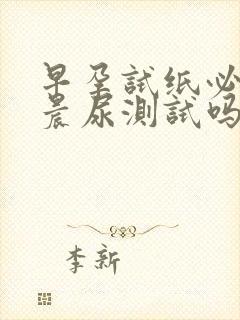 早孕試纸必
晨尿测試吗
李新